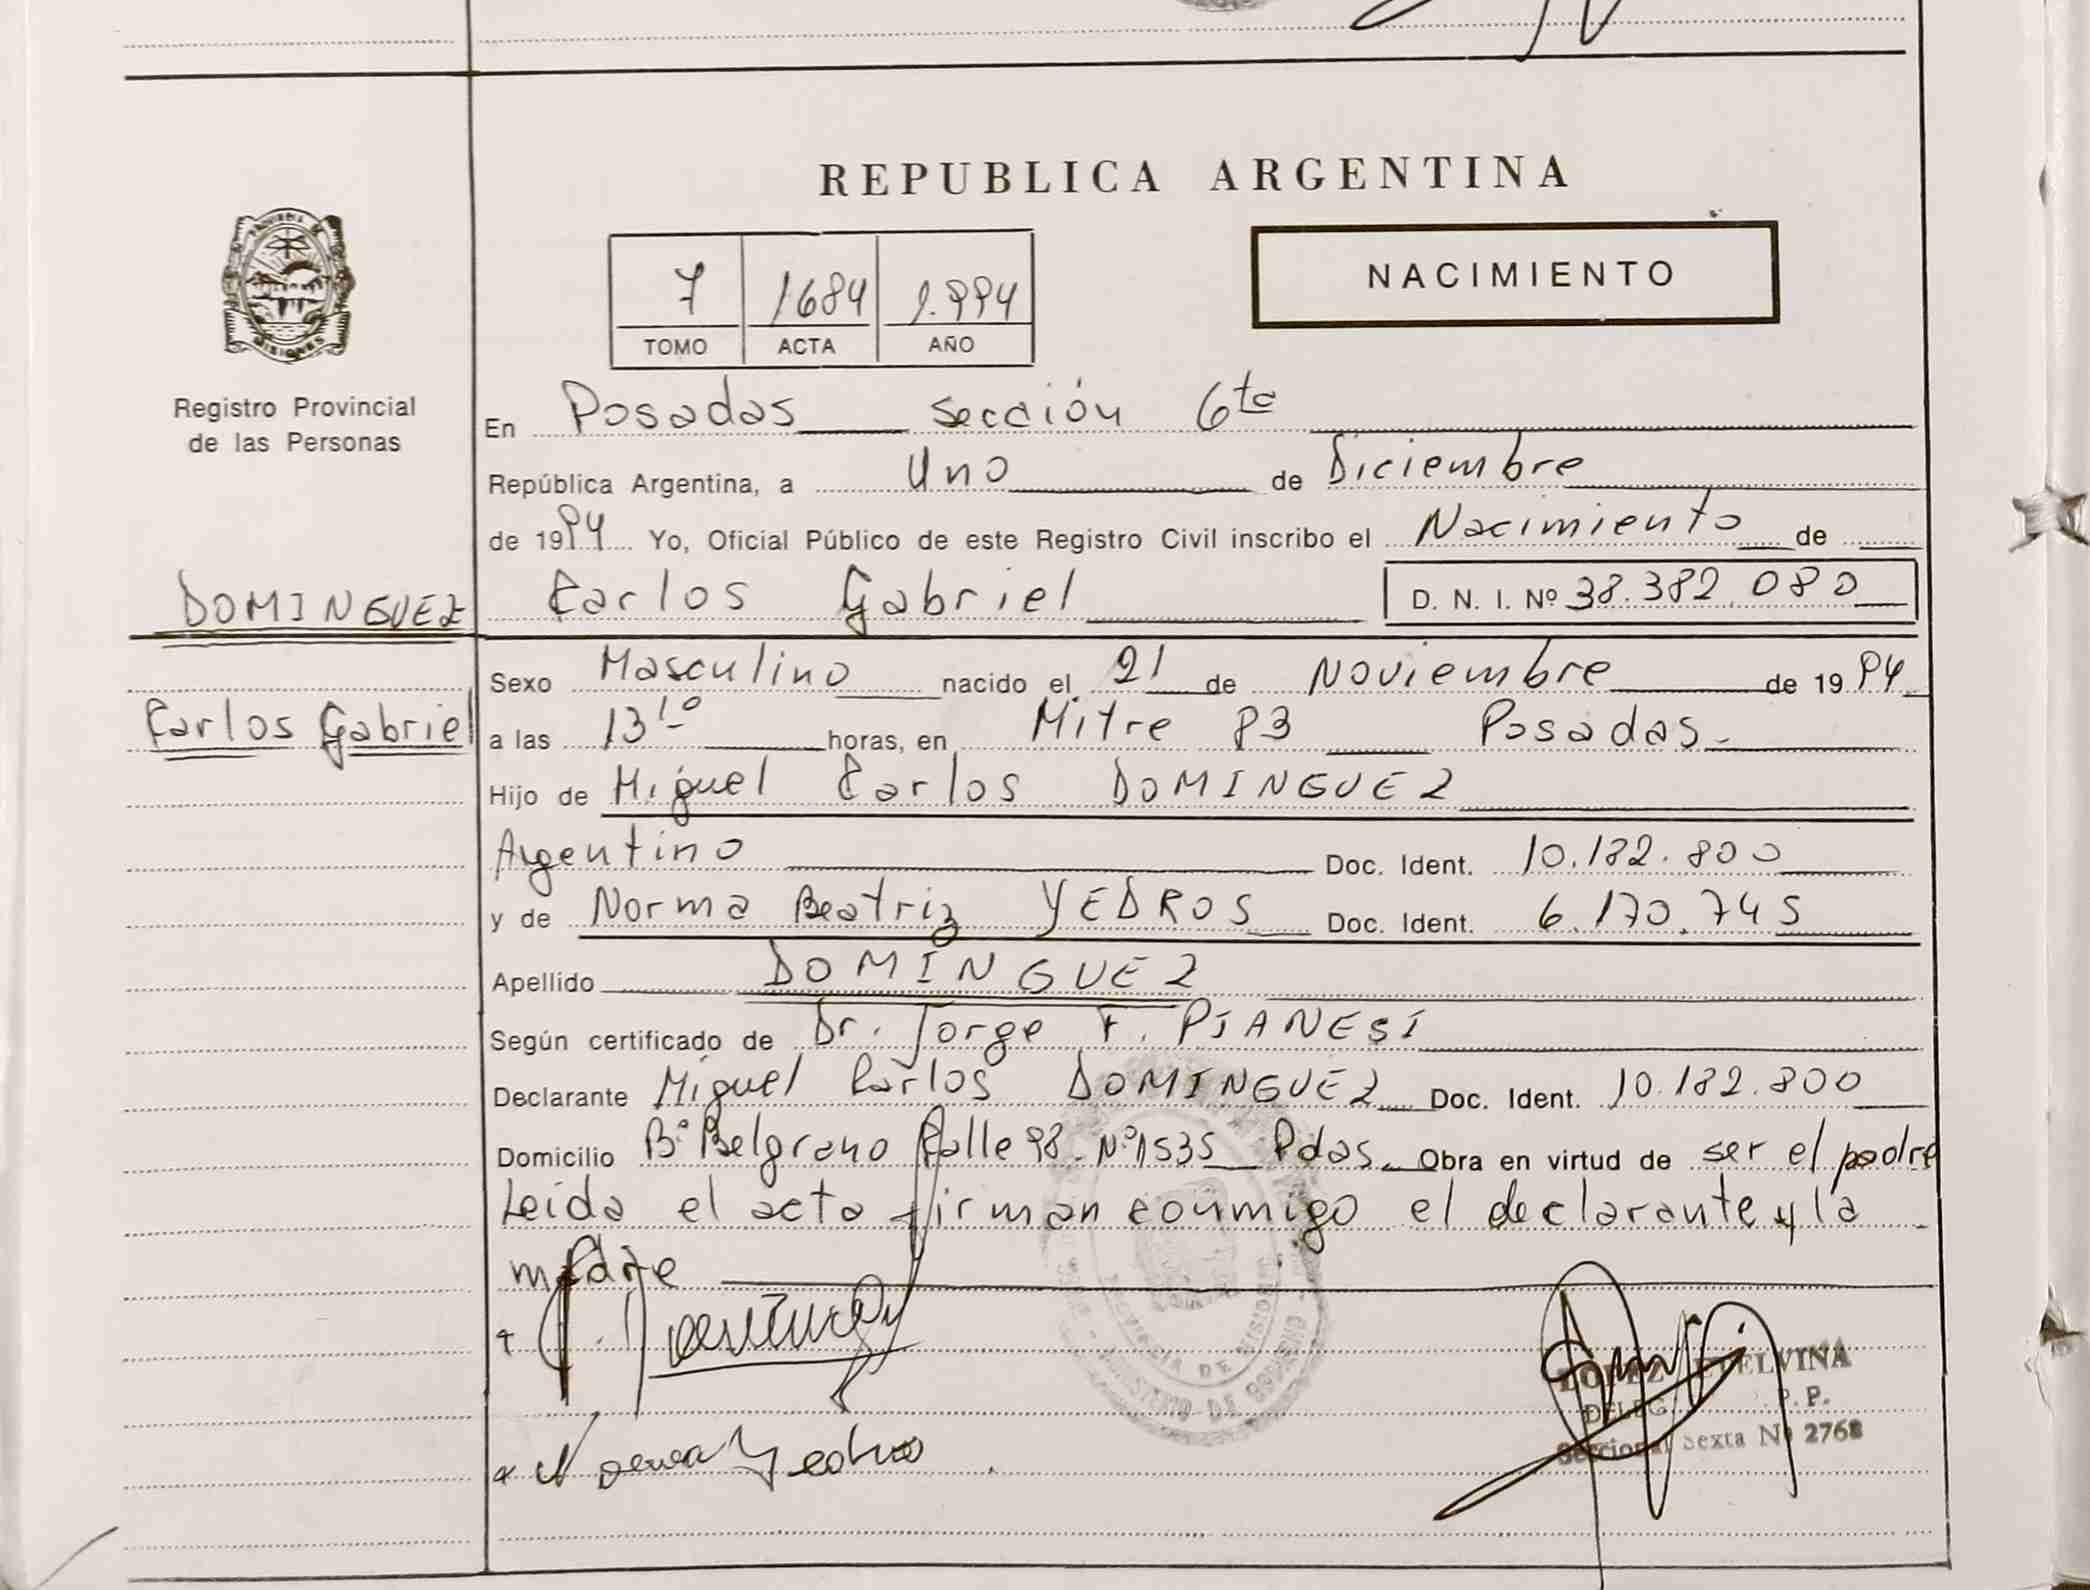 REPUBLICA ARGENTINA
NACIMIENTO
7 1684 1.994
TOMO ACTA AÑO
PROVINCIA DE
MISIONES
Registro Provincial
de las Personas
En Posadas sección 6ta
República Argentina, a Uno de Diciembre
de 1994 Yo, Oficial Público de este Registro Civil inscribo el Nacimiento de
DOMINGUEZ Carlos Gabriel D. N. I. Nº 38.382.080
Sexo Masculino nacido el 21 de Noviembre de 1994
Carlos Gabriel a las 13 10 horas, en Mitre 93 Posadas.-
Hijo de Miguel Carlos DOMINGUEZ
Argentino Doc. Ident. 10.182.800
y de Norma Beatriz YEDROS Doc. Ident. 6.170.745
Apellido DOMINGUEZ
Según certificado de Dr. Jorge F. PIANESI
Declarante Miguel Carlos DOMINGUEZ Doc. Ident. 10.182.800
Domicilio Bº Belgrano Calle 98 - Nº 1535 Pdas. Obra en virtud de ser el padre
Leida el acta firman conmigo el declarante y la
madre
PROVINCIA DE MISIONES
MINISTERIO DE GOBIERNO
LOPEZ ETELVINA
DELEG. P. P.
Seccional Sexta Nº 2768